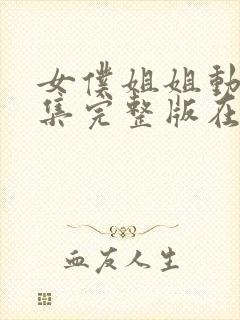 女僕姐姐動
集完整版在
血友人生